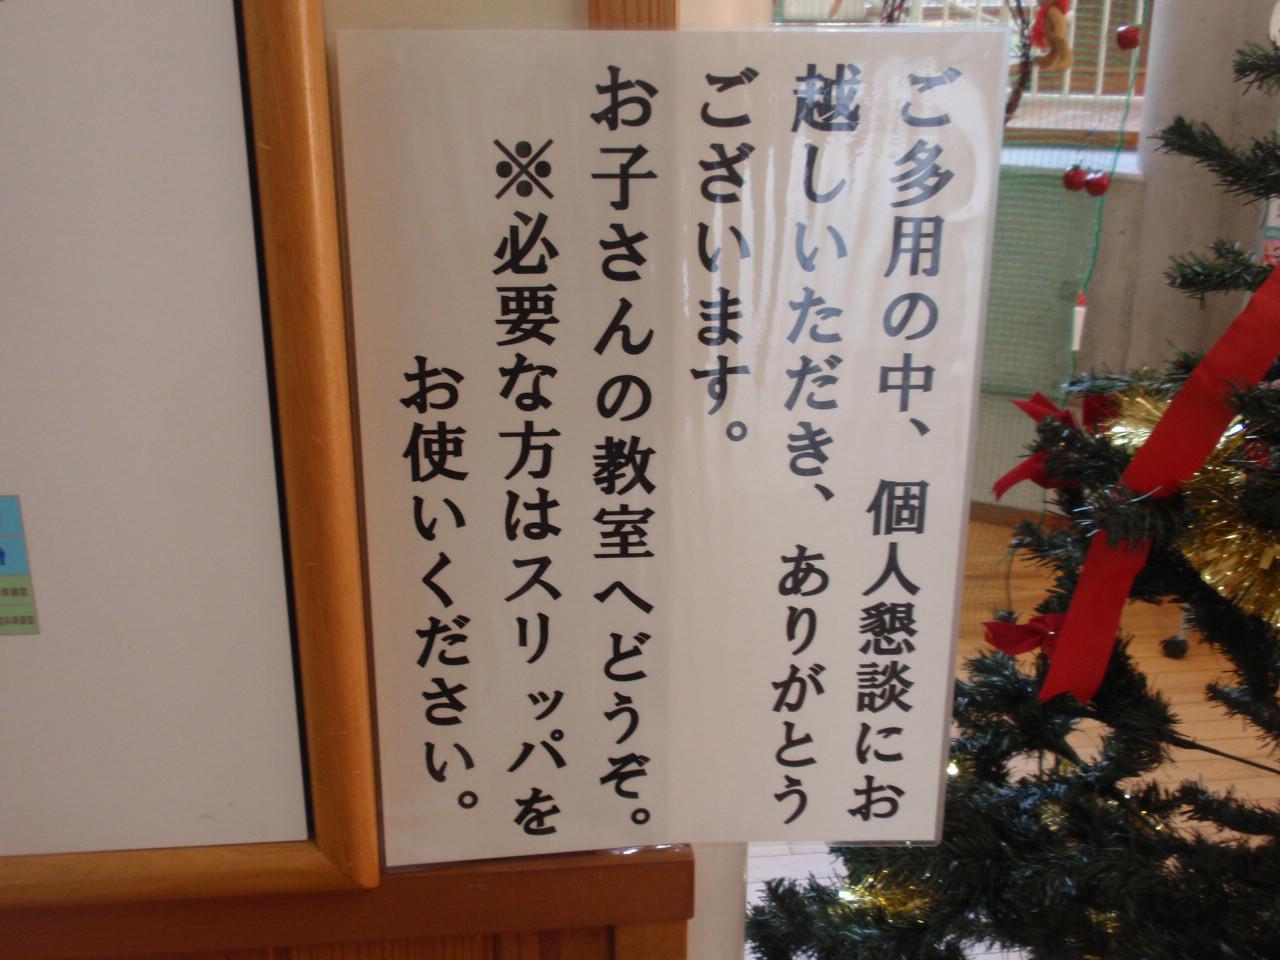 ご多用の中、個人懇談にお
越しいただき、ありがとう
ございます。
お子さんの教室へどうぞ。
※必要な方はスリッパを
お使いください。